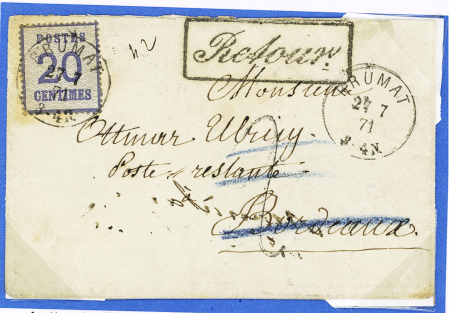 POSTES
20
CENTIMES
BRÜMAT
27 7
71
3. 4N.
Retour.
BRÜMAT
27 7
71
3. 4N.
Monsieur
Ottmar
Poste restante
Bordeaux